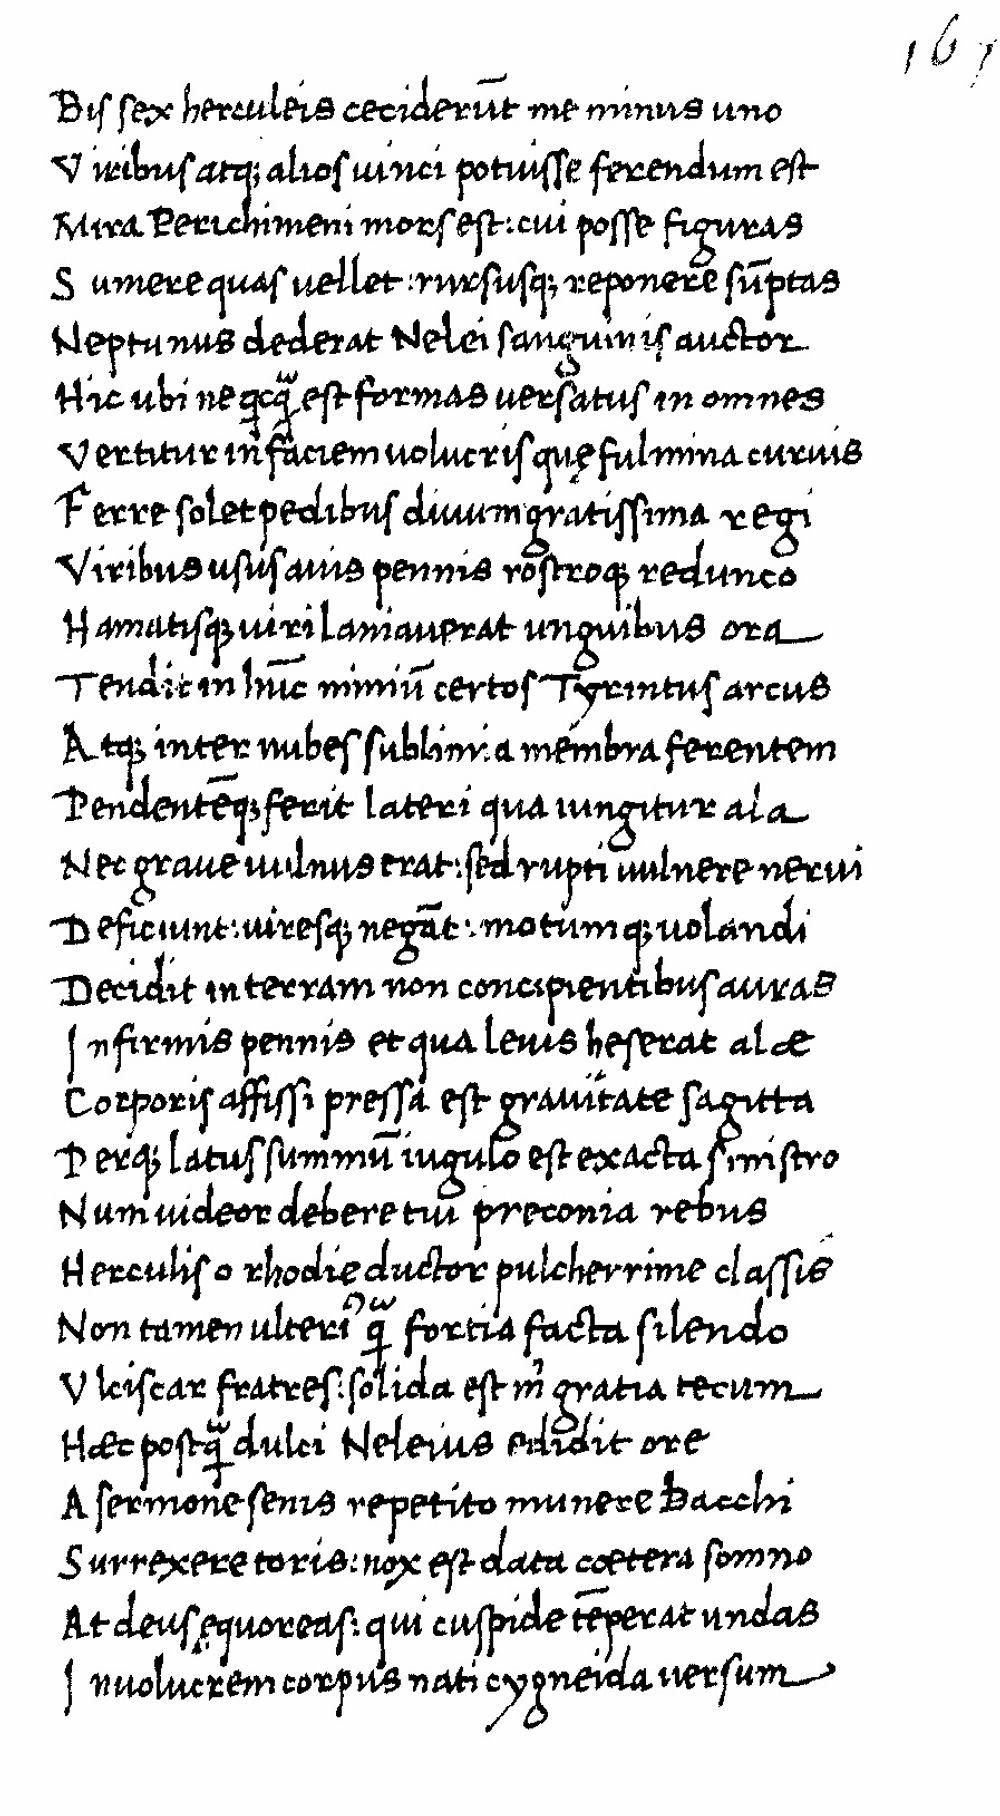 167
Bis sex herculeis ceciderūt me minus uno
Viribus atq; alios uinci potuisse ferendum est
Mira Perichimeni mors est: cui posse figuras
Sumere quas uellet: rursusq; reponere sūptas
Neptunus dederat Nelei sanguinis auctor
Hic ubi neqcq̃ est formas uersatus in omnes
Vertitur in faciem uolucris quę fulmina curuis
Ferre solet pedibus diuum gratissima regi
Viribus usus auis pennis rostroq; redunco
Hamatisq; uiri laniauerat unguibus ora
Tendit in hūc nimiū certos Tyrintus arcus
Atq; inter nubes sublimia membra ferentem
Pendentēq; ferit lateri qua iungitur ala
Nec graue uulnus erat: sed rupti uulnere nerui
Deficiunt: uiresq; negāt: motumq; uolandi
Decidit in terram non concipientibus auras
Infirmis pennis et qua leuis heserat alæ
Corporis affissi pressa est grauitate sagitta
Perq; latus summū iugulo est exacta sinistro
Num uideor debere tui preconia rebus
Herculis o rhodię ductor pulcherrime classis
Non tamen ulteri⁹ q̃ fortia facta silendo
Vlciscar fratres: solida est m̉ gratia tecum
Hæc postq̃ dulci Neleius edidit ore
A sermone senis repetito munere Bacchi
Surrexere toris: nox est data cœtera somno
At deus ęquoreas: qui cuspide tēperat undas
In uolucrem corpus nati cygneida uersum